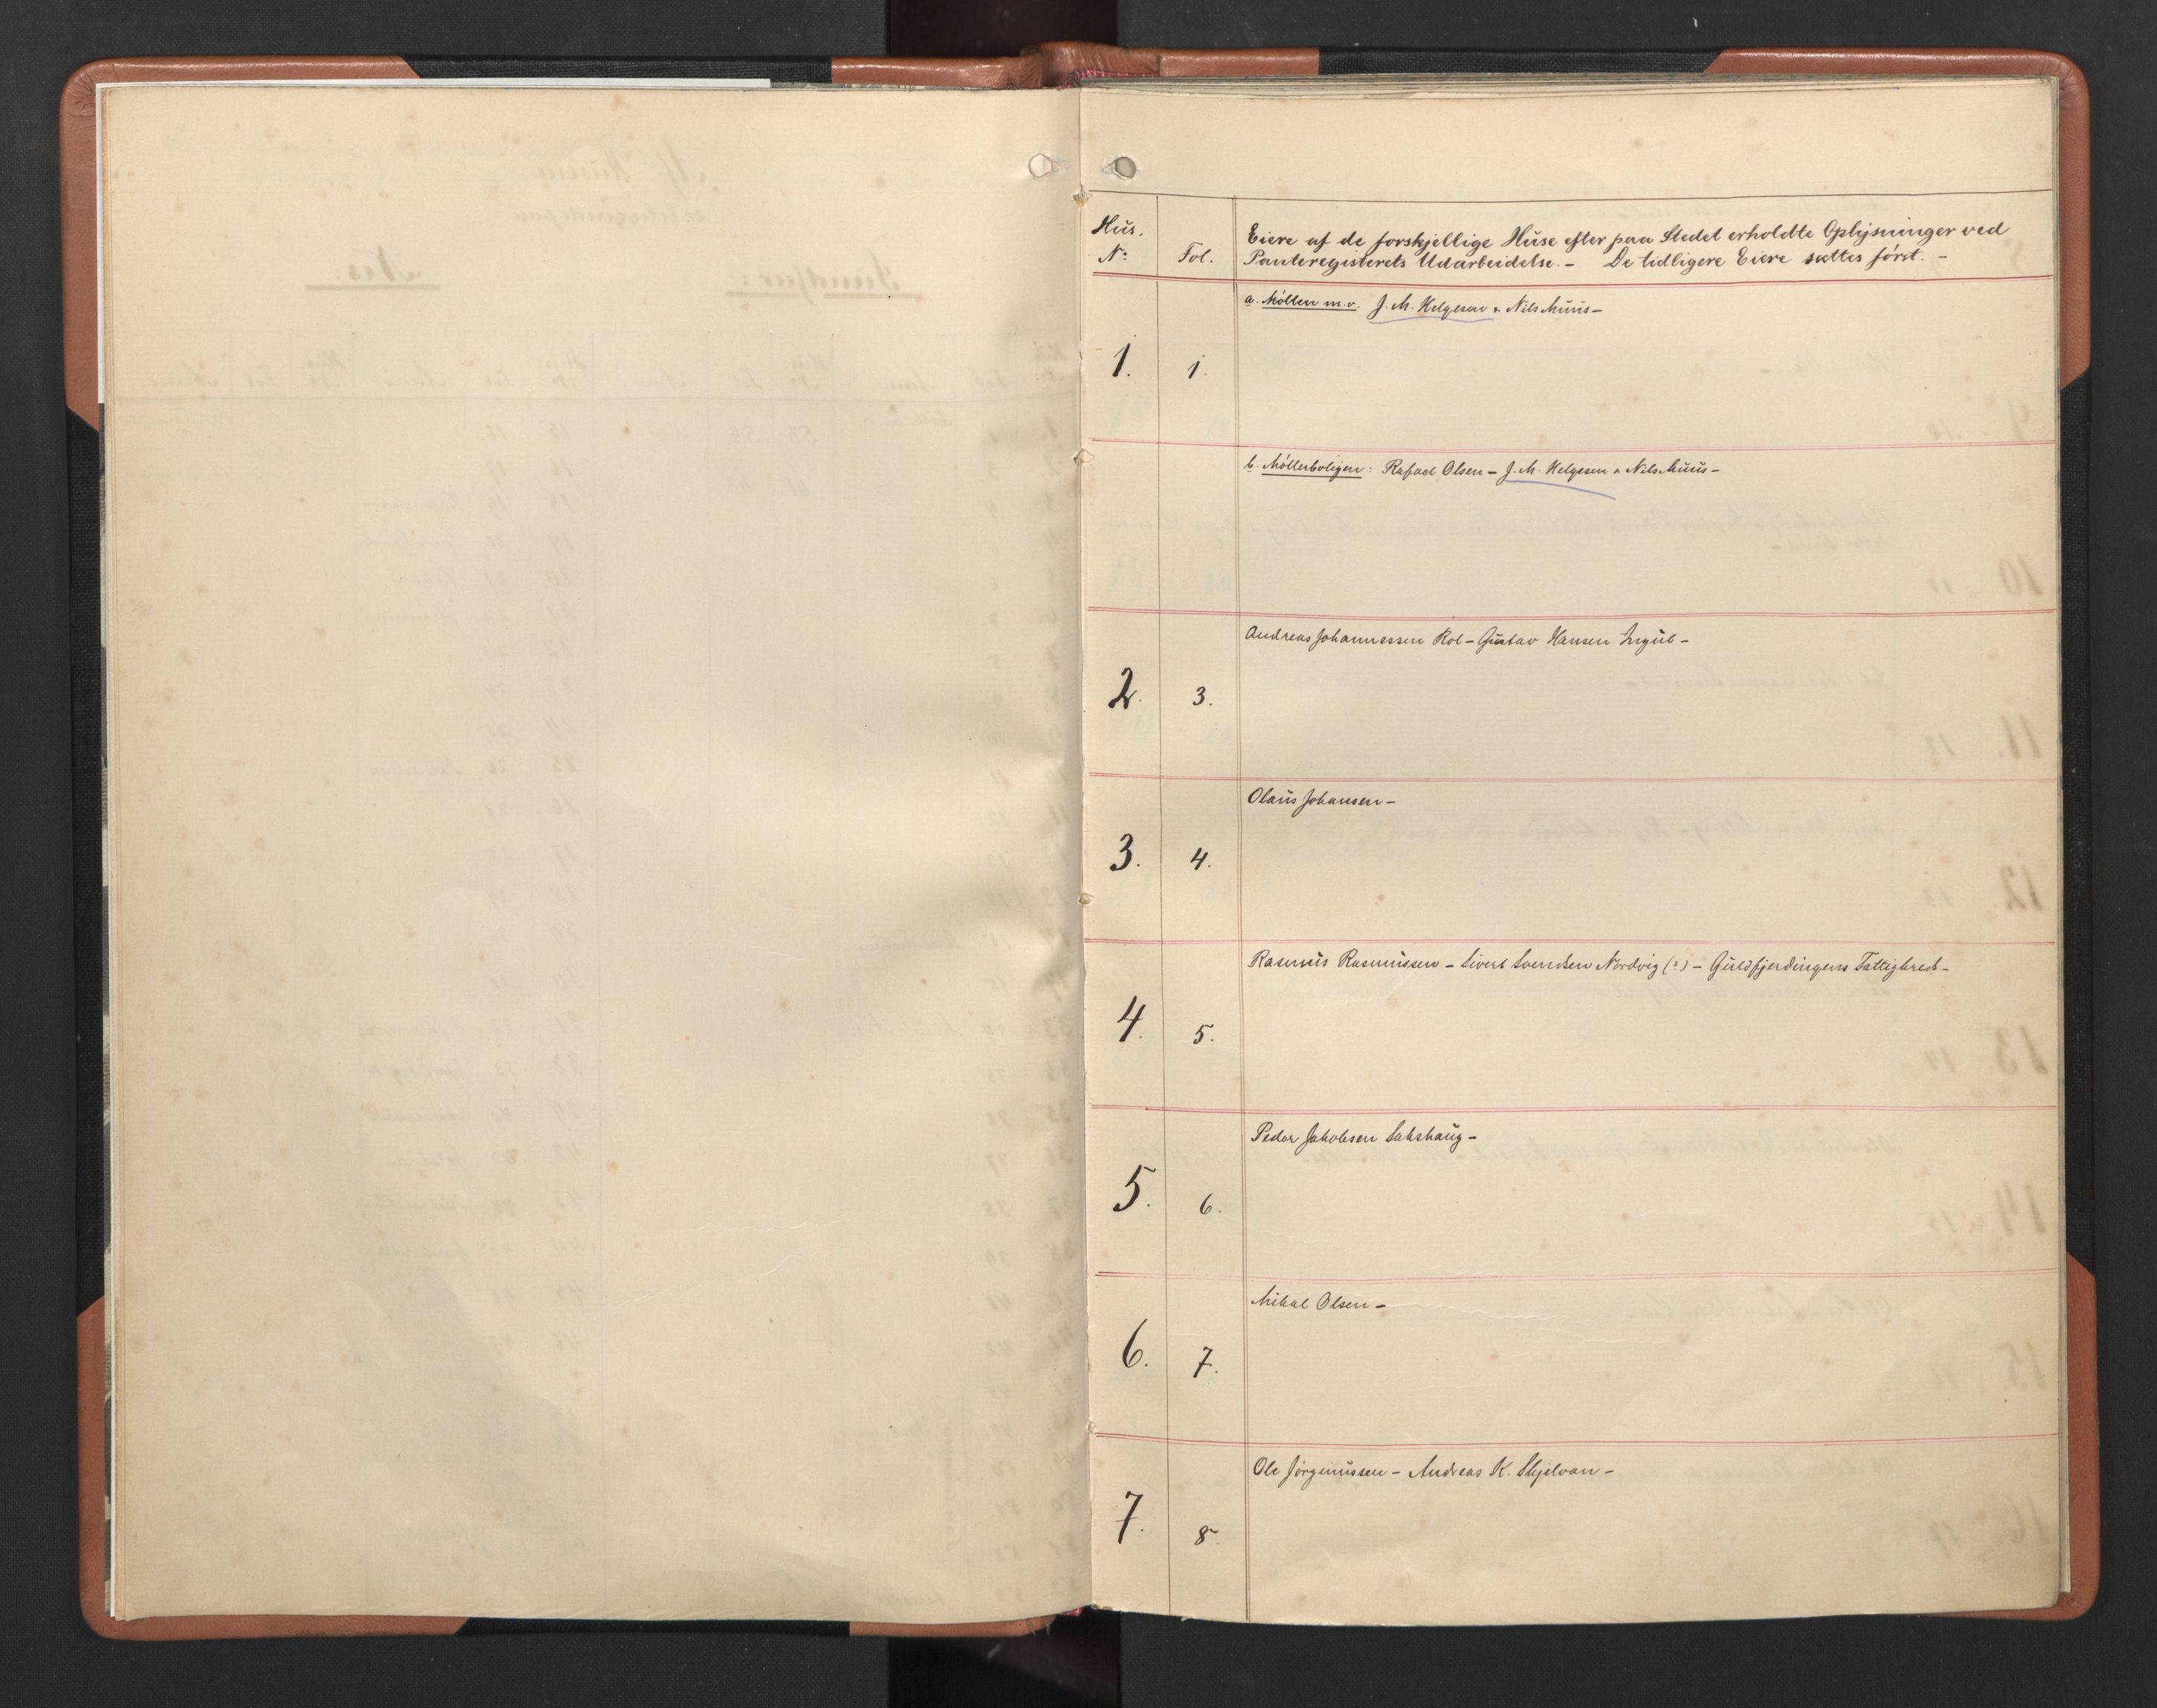 Hus. N° Fol. Eiere af de forskjellige Huse efter paa Stedet erholdte Oplysninger ved
Panteregisterets Udarbeidelse. – De tidligere Eiere sættes først. –
a. Möllen m.v. J. M. Helgesen & Nils Muus –
1. 1.
b. Möllerboligen: Rafael Olsen – J. M. Helgesen & Nils Muus –
Andreas Johannessen Rol – Gustav Hansen
2. 3.
Olaus Johansen –
3. 4.
Rasmus Rasmussen – Sivert Svendsen Nordvig (?) – Guldfjerdingens Fattigkred –
4. 5.
Peder Jakobsen Sakshaug –
5. 6.
Mikal Olsen –
6. 7.
Ole Jørginussen – Andreas K. Skjelvan –
7. 8